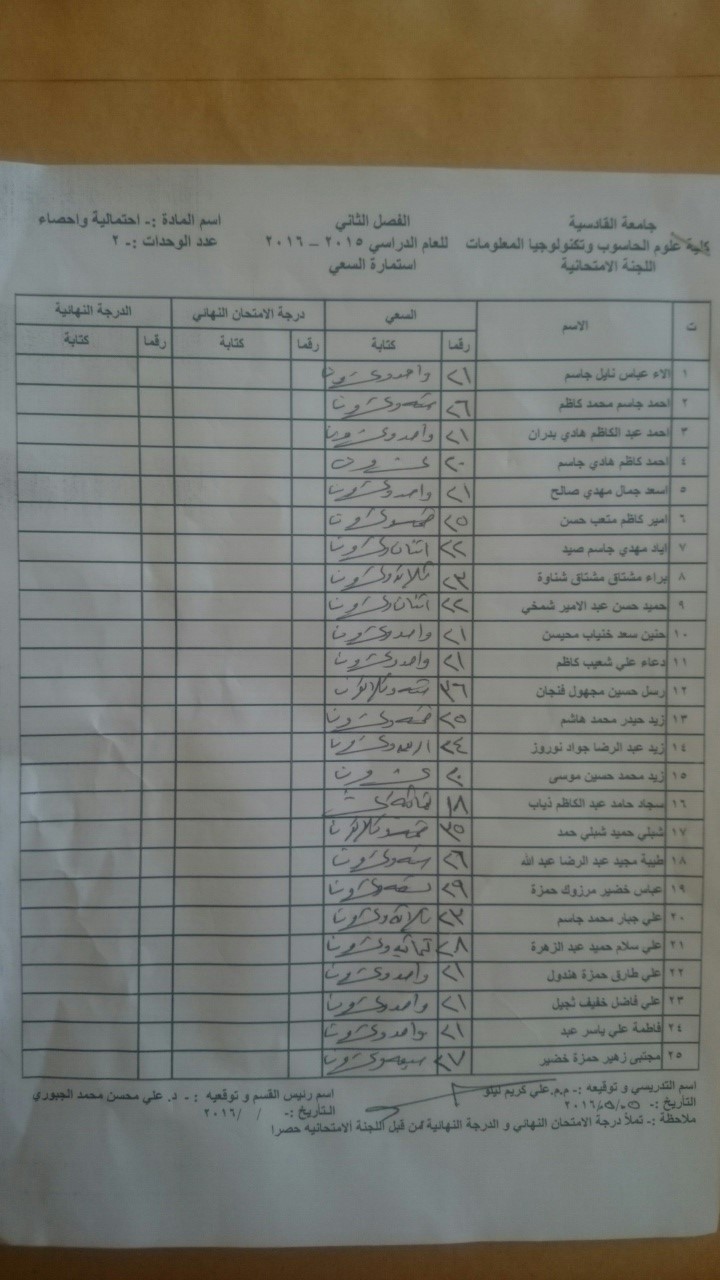 جامعة القادسية
كلية علوم الحاسوب وتكنولوجيا المعلومات
اللجنة الامتحانية
الفصل الثاني
للعام الدراسي ٢٠١٥ – ٢٠١٦
استمارة السعي
اسم المادة :- احتمالية واحصاء
عدد الوحدات :- ٢
ت الاسم السعي درجة الامتحان النهائي الدرجة النهائية
رقما كتابة رقما كتابة رقما كتابة
١ الاء عباس نايل جاسم ٢١ واحد وعشرون
٢ احمد جاسم محمد كاظم ٢٦ سته وعشرون
٣ احمد عبد الكاظم هادي بدران ٢١ واحد وعشرون
٤ احمد كاظم هادي جاسم ٢٠ عشرون
٥ اسعد جمال مهدي صالح ٢١ واحد وعشرون
٦ امير كاظم متعب حسن ٢٥ خمسه وعشرون
٧ اياد مهدي جاسم صيد ٢٢ اثنان وعشرون
٨ براء مشتاق مشتاق شناوة ٢٣ ثلاثة وعشرون
٩ حميد حسن عبد الامير شمخي ٢٢ اثنان وعشرون
١٠ حنين سعد خنياب محيسن ٢١ واحد وعشرون
١١ دعاء علي شعيب كاظم ٢١ واحد وعشرون
١٢ رسل حسين مجهول فنجان ٣٦ سته وثلاثون
١٣ زيد حيدر محمد هاشم ٢٥ خمسه وعشرون
١٤ زيد عبد الرضا جواد نوروز ٢٤ اربعه وعشرون
١٥ زيد محمد حسين موسى ٢٠ عشرون
١٦ سجاد حامد عبد الكاظم ذياب ١٨ ثمانية عشر
١٧ شبلي حميد شبلي حمد ٣٥ خمسه وثلاثون
١٨ طيبة مجيد عبد الرضا عبد الله ٢٦ سته وعشرون
١٩ عباس خضير مرزوك حمزة ٢٩ تسعه وعشرون
٢٠ علي جبار محمد جاسم ٢٣ ثلاثة وعشرون
٢١ علي سلام حميد عبد الزهرة ٢٨ ثمانيه وعشرون
٢٢ علي طارق حمزة هندول ٢١ واحد وعشرون
٢٣ علي فاضل خفيف ثجيل ٢١ واحد وعشرون
٢٤ فاطمة علي ياسر عبد ٢١ واحد وعشرون
٢٥ مجتبى زهير حمزة خضير ٢٧ سبعه وعشرون
اسم التدريسي و توقيعه :- م.م.علي كريم
التأريخ :- ٢٠١٦/٥/٠٥
اسم رئيس القسم و توقيعه :- د. علي محسن محمد الجبوري
التأريخ :- / / ٢٠١٦
ملاحظة :- تملأ درجة الامتحان النهائي و الدرجة النهائية من قبل اللجنة الامتحانيه حصرا